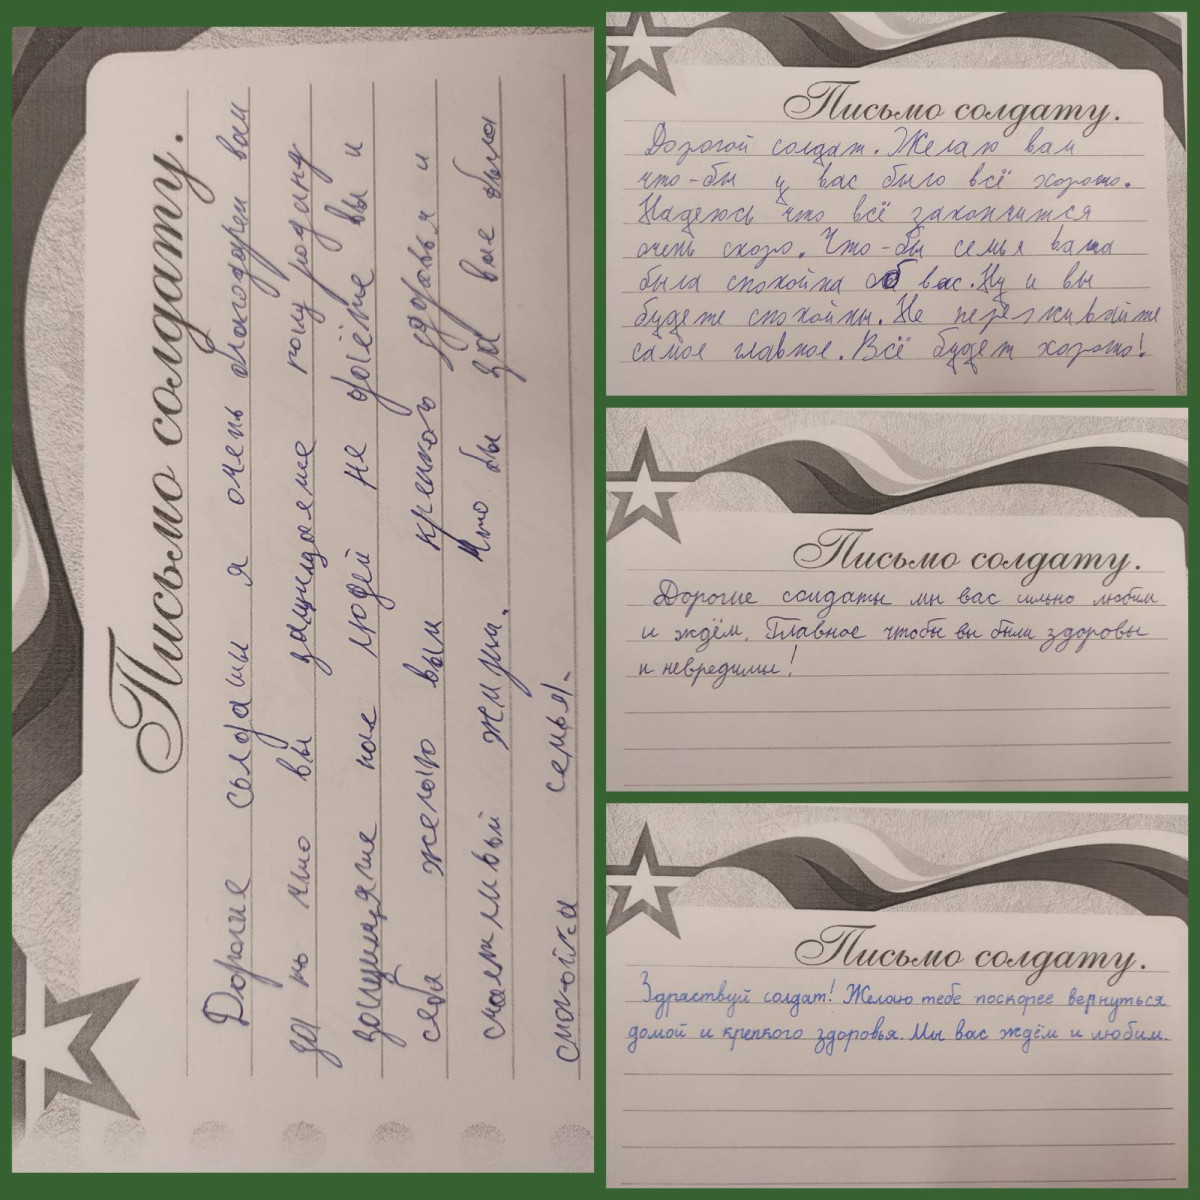 Письмо солдату.
Дорогие солдаты я очень благодарен вам
за то что вы защищаете нашу родину
защищяете нас людей не даёте вы и
себя желаю вам крепкого здоровья и
счастливый жизни. Что бы за вас была
спокойна семья.
Письмо солдату.
Дорогой солдат. Желаю вам
что-бы у вас было всё хорошо.
Надеюсь что всё закончится
очень скоро. Что-бы семья ваша
была спокойна об вас. Ну и вы
будете спокойны. Не переживайте
самое главное. Всё будет хорошо!
Письмо солдату.
Дорогие солдаты мы вас сильно любим
и ждём. Главное чтобы вы были здоровы
и невредимы!
Письмо солдату.
Здраствуй солдат! Желаю тебе поскорее вернуться
домой и крепкого здоровья. Мы вас ждём и любим.